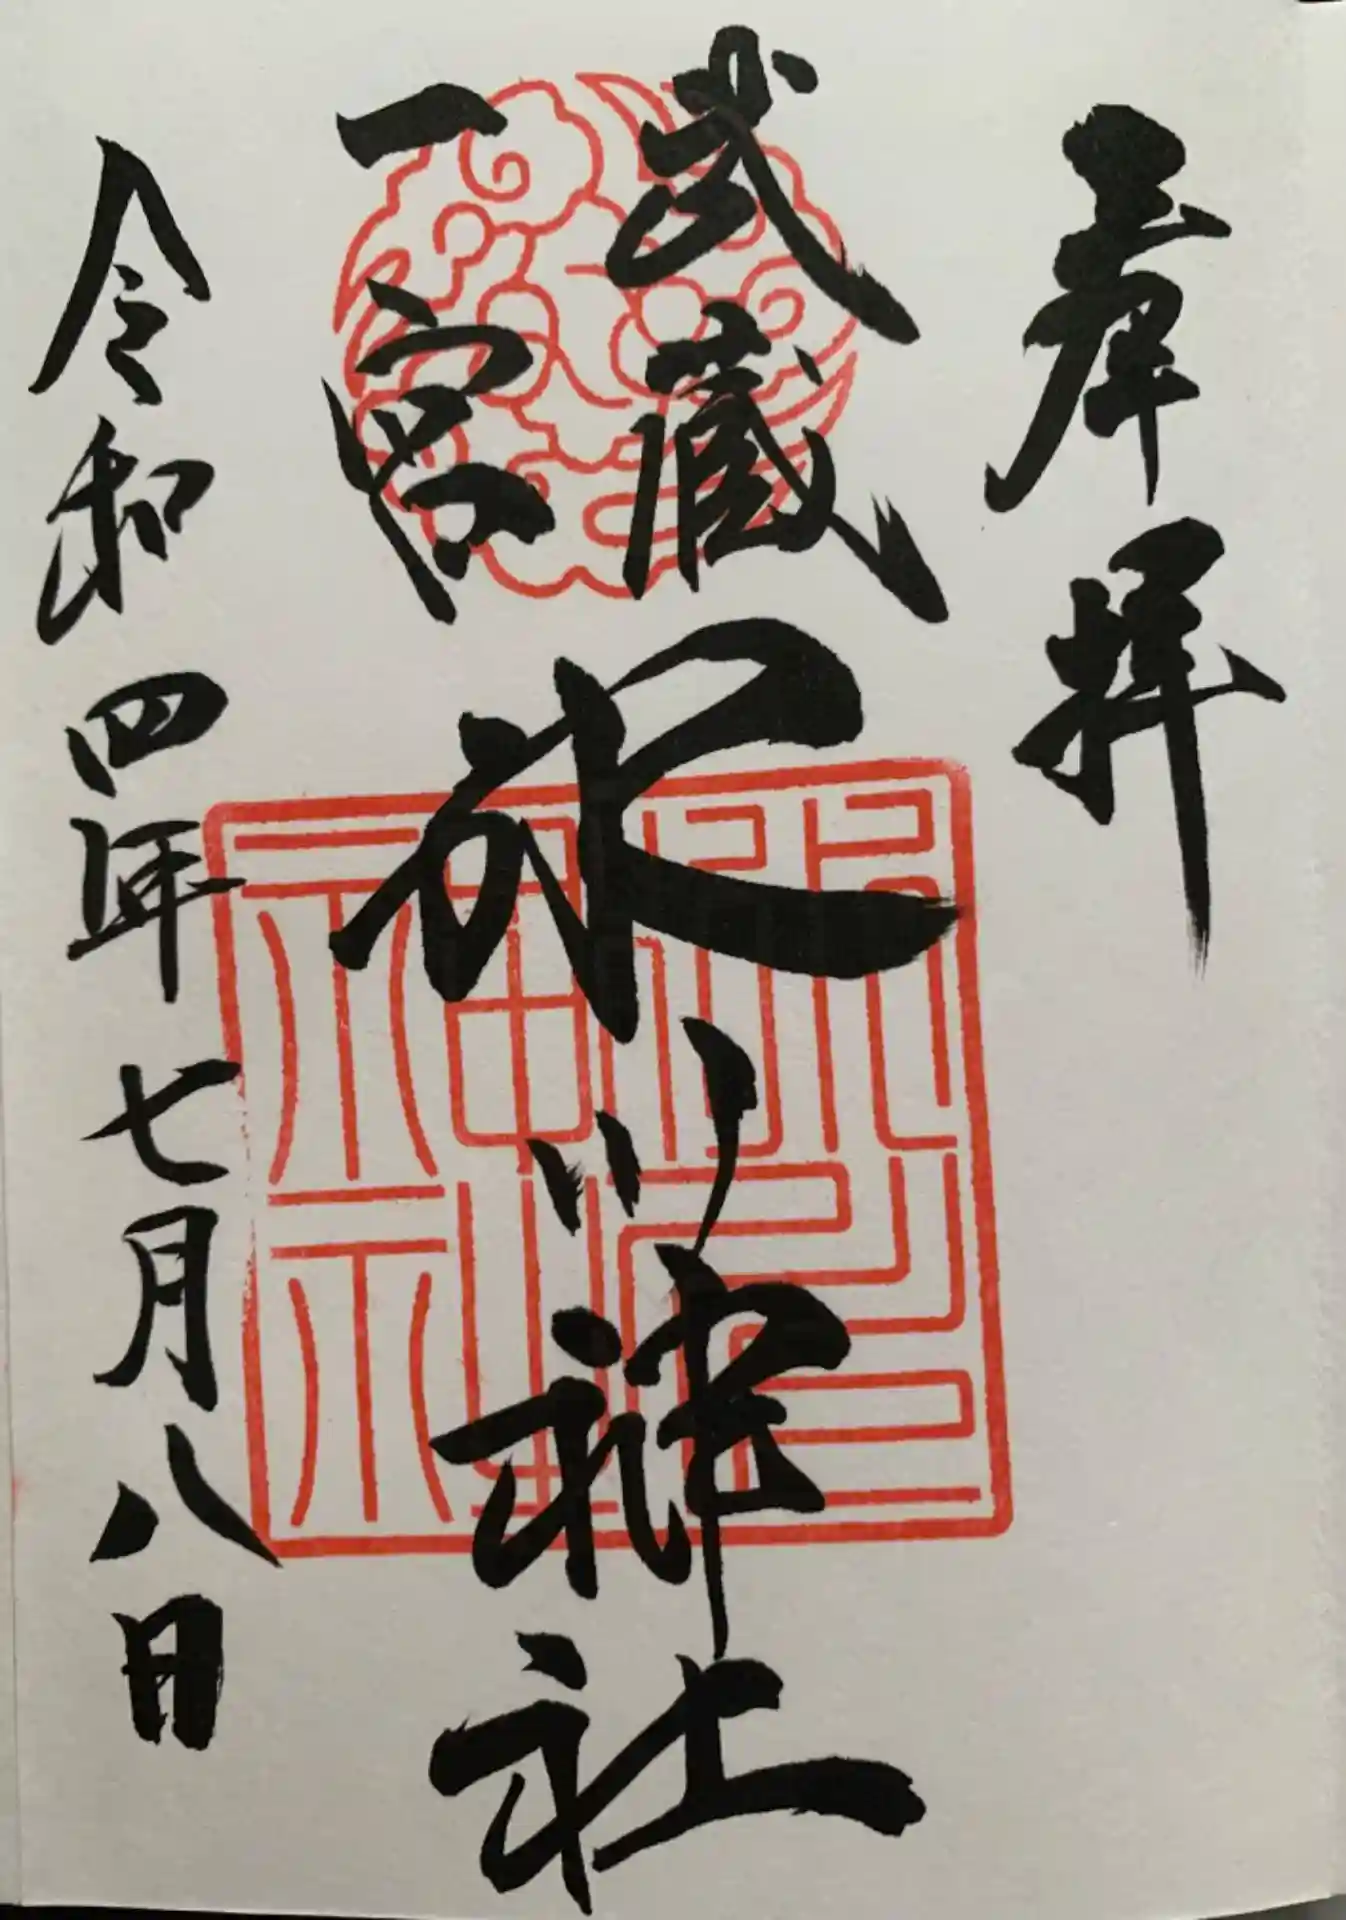 奉拝
武蔵
一宮
氷川神社
令和四年七月八日
氷川神社